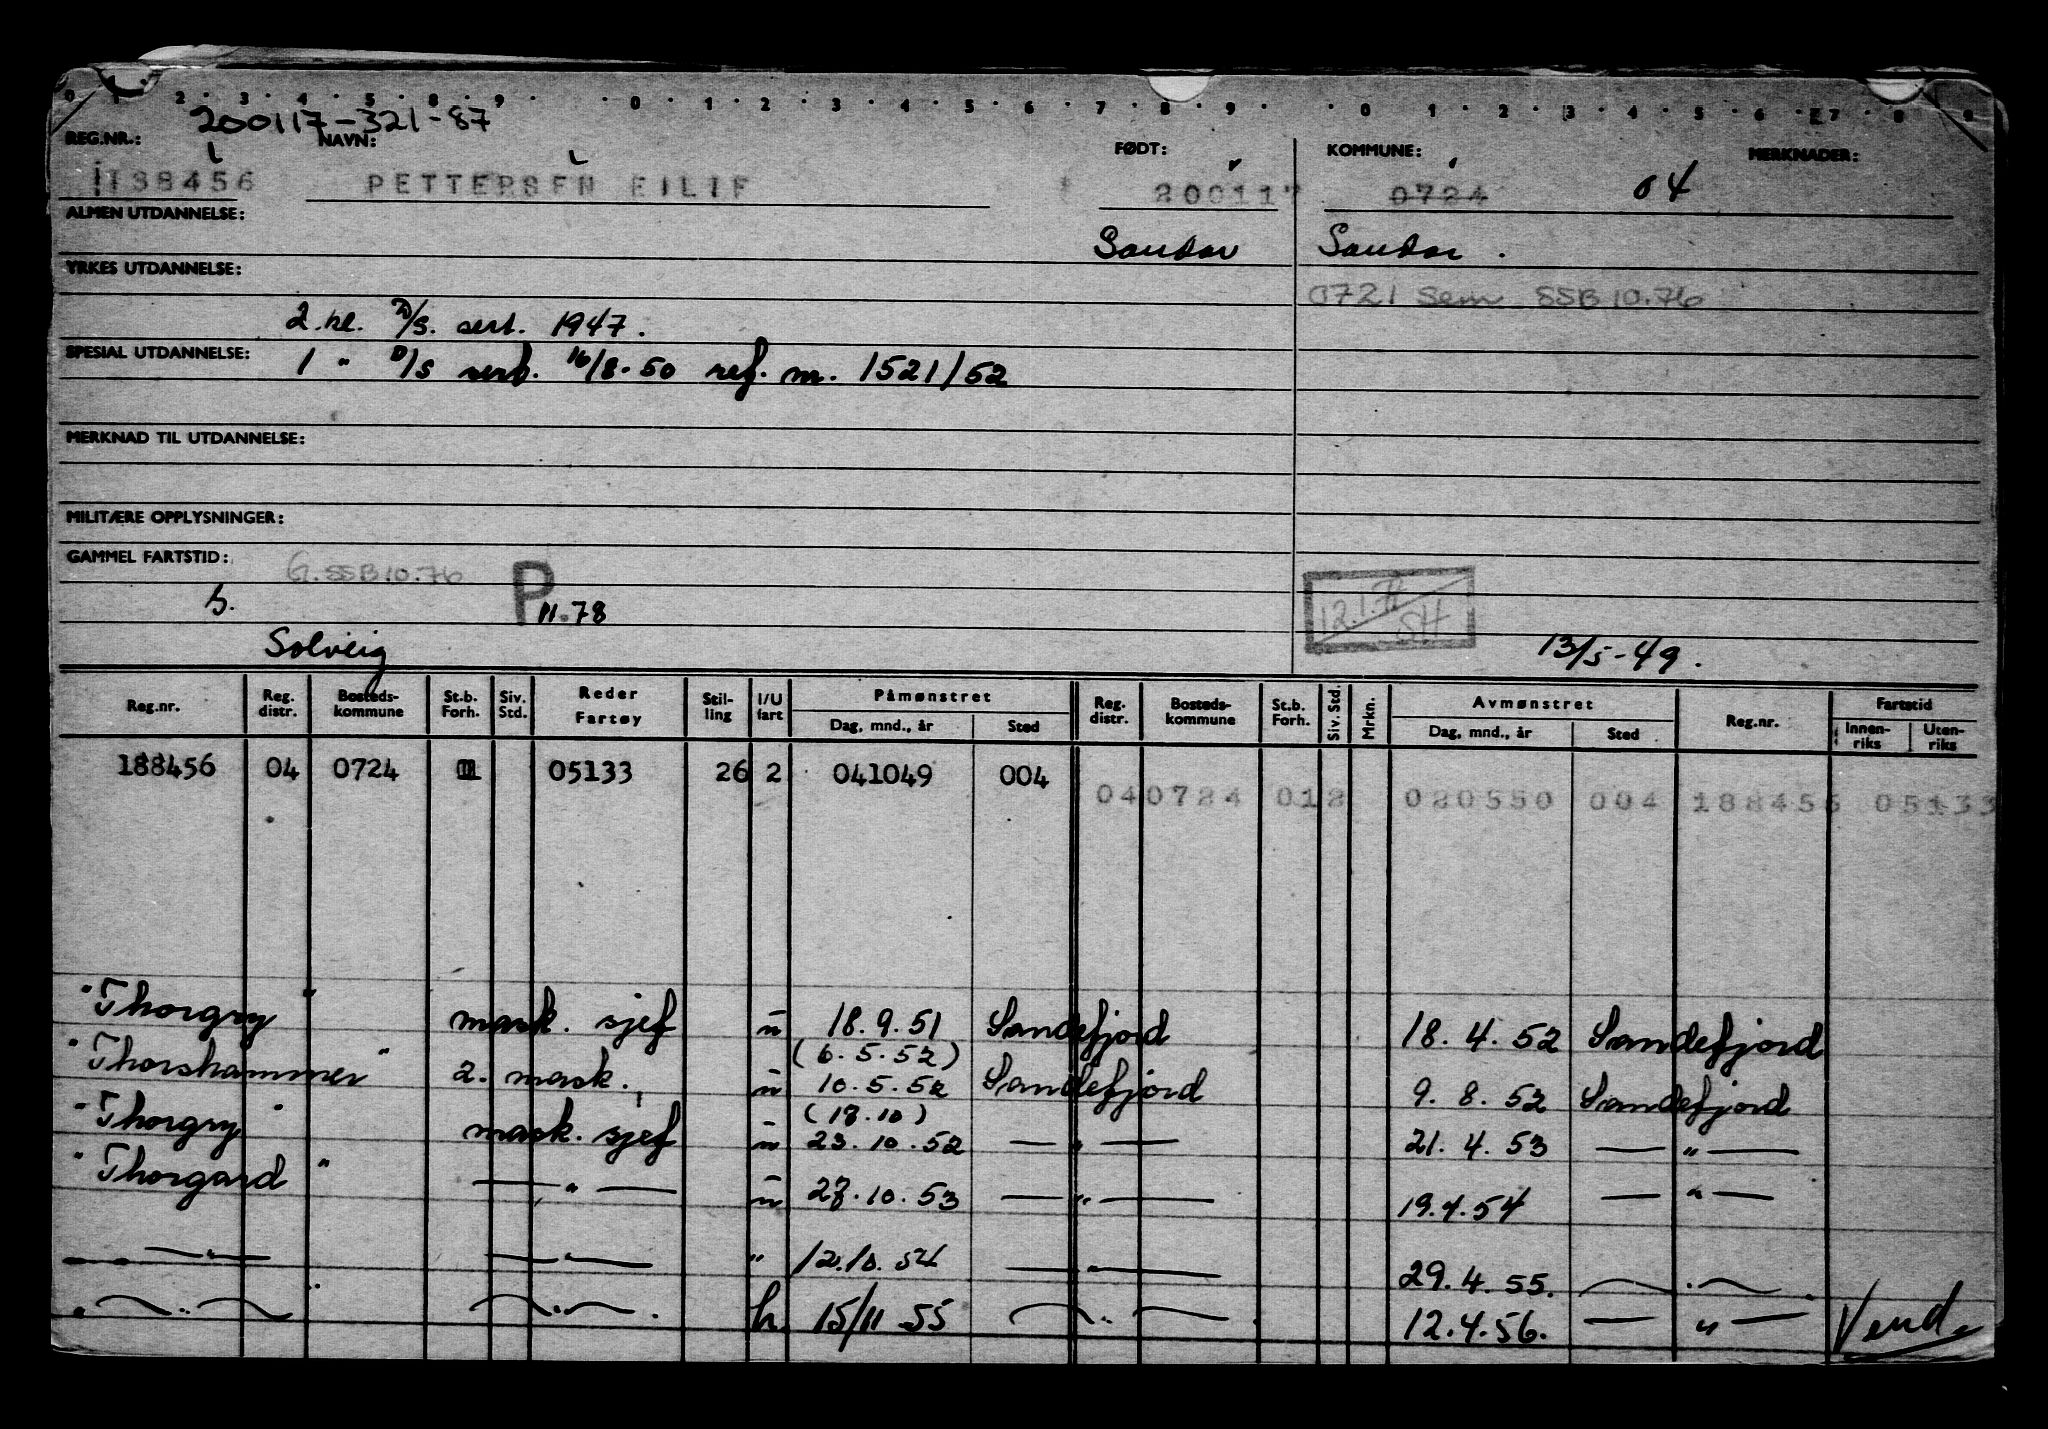 0 1 2 3 4 5 6 7 8 9 0 1 2 3 4 5 6 7 8 9 0 1 2 3 4 5 6 7 8 9
200117-321-87
REG.NR.: NAVN: FØDT: KOMMUNE: MERKNADER:
188456 PETTERSEN EILIF 200117 0724 04
ALMEN UTDANNELSE:
Sandar Sandar.
YRKES UTDANNELSE:
0721 Sem SSB 10.76
2. kl. D/S. sert. 1947.
SPESIAL UTDANNELSE: 1 " D/S sert. 16/8-50 ref. nr. 1521/52
MERKNAD TIL UTDANNELSE:
MILITÆRE OPPLYSNINGER:
GAMMEL FARTSTID:
G. SSB 10.76
P 11.78
SH
Solveig 13/5-49.
Reg.nr. Reg. distr. Bosteds-kommune St.b. Forh. Siv. Std. Reder Fartøy Stil-ling I/U fart Påmønstret Dag, mnd., år Sted Reg. distr. Bosteds-kommune St.b. Forh. Siv. Std. Mrkn. Avmønstret Dag, mnd., år Sted Reg.nr. Fartstid Innen-riks Uten-riks
188456 04 0724 05133 26 2 041049 004
040724 012 020550 004 188456 05133
"Thorgry" mask. sjef u 18.9.51 Sandefjord 18.4.52 Sandefjord
(6.5.52)
"Thorshammer" 2. mask. u 10.5.52 Sandefjord 9.8.52 Sandefjord
(18.10)
"Thorgry" mask. sjef u 23.10.52 — " — 21.4.53 — " —
"Thorgard" — " — u 27.10.53 — " — 19.4.54 — " —
— " — — " — " 12.10.54 — " — 29.4.55. — " —
— " — — " — h 15/11 55 — " — 12.4.56. — " — Vend.